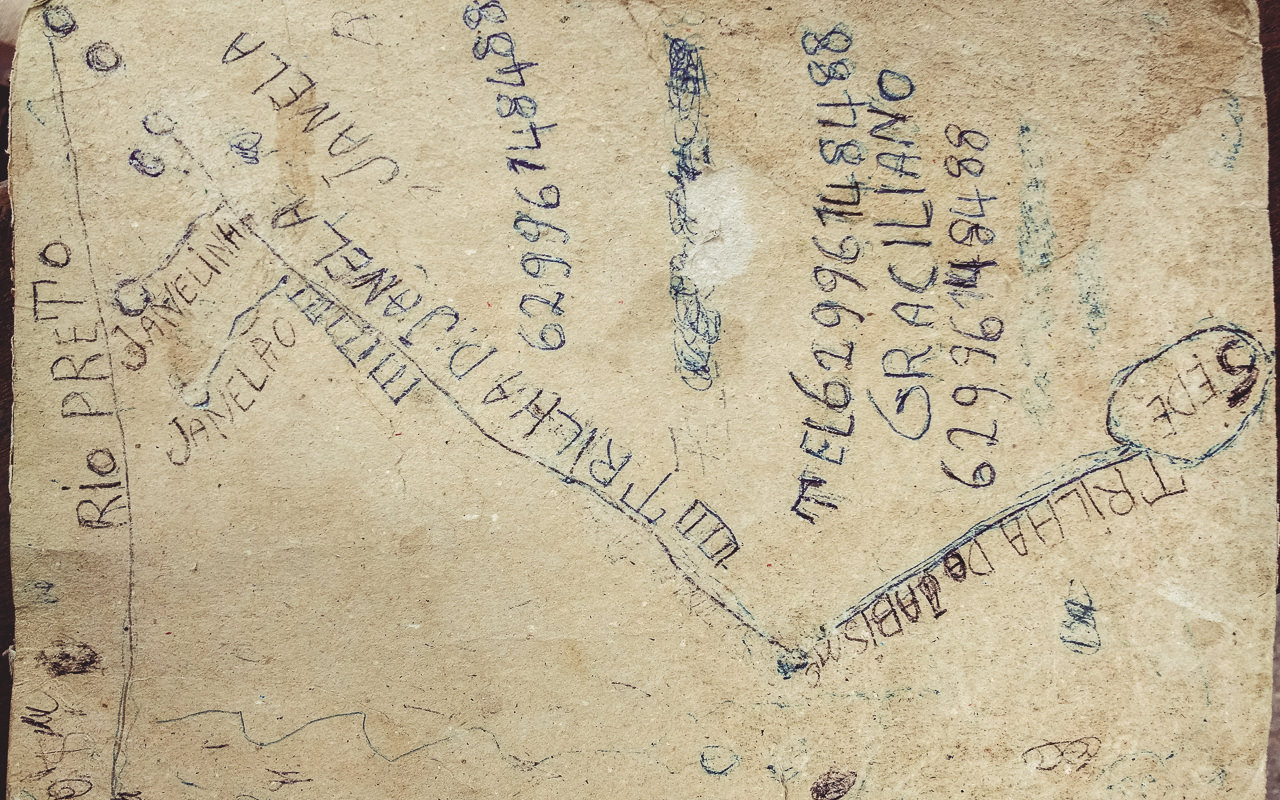 RiO PRETO
JANELINHA
JANELÃO
JANELA
JANELA
TRILHA DA JANELA
62996148488
MEL62996148488
GRACILIANO
62996148488
SEDE
TRILHA DO ABISMO